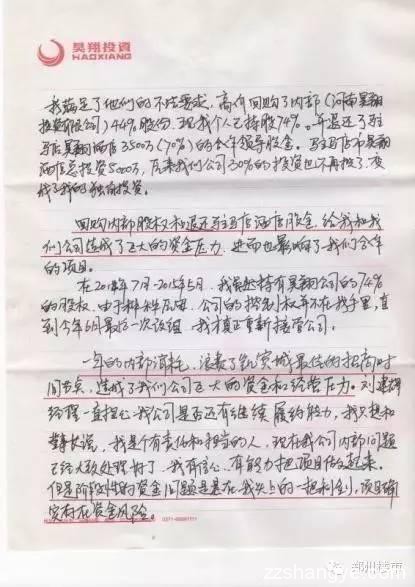 昊翔投資
HAOXIANG
我满足了他们的不法要求，高价回购了内部（河南昊翔
投资有限公司）44%股份，现我个人已持股74%。并退还了驻
马店昊翔酒店3500万（70%）的全年领导股金。驻马店市昊翔
酒店总投资5000万，后来我们公司30%的投资也不再投了，变
成了我的独自投资。
回购内部股权和退还驻马店酒店股金，给我和我
们公司造成了巨大的资金压力，进而也影响了我们今年
的项目。
在2014年7月-2015年5月，我虽然持有昊翔公司的74%
的股权，由于种种原因，公司的控制权并不在我手里，直
到今年5月最后一次改组，我才真正重新接管公司。
一年的内部消耗，浪费了凯宾城最佳的招商时
间节点，造成了我们公司巨大的资金和经营压力。刘
经理一直担心我公司是否还有继续履约能力，我只想和
董事长说，我是个有责任和担当的人，现在我公司内部问题
已经大致处理好了，我有信心、有能力把项目做起来。
但是阶段性的资金问题是悬在我头上的一把利剑，项目确
实存在资金风险。
郑州楼市
zzshangye.com